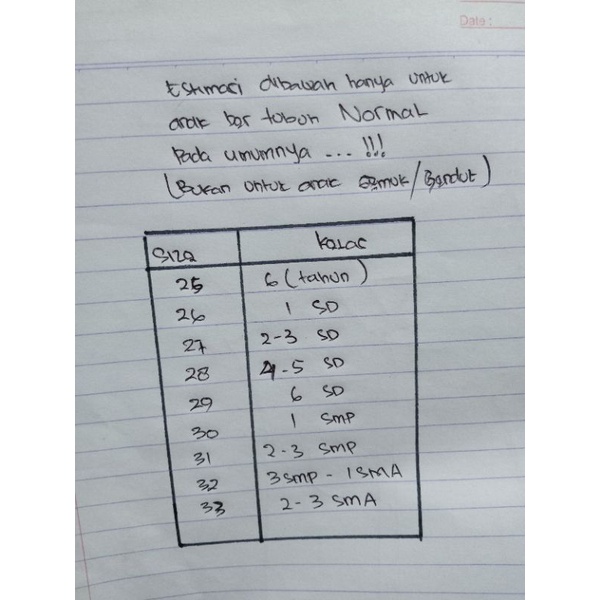 Date :
Estimasi dibawah hanya untuk
anak ber tubuh Normal
Pada umumnya ... !!!
(Bukan untuk anak Gemuk/Gendut)
Size Kelas
25 6 (tahun)
26 1 SD
27 2-3 SD
28 4-5 SD
29 6 SD
30 1 SMP
31 2-3 SMP
32 3 SMP - 1 SMA
33 2-3 SMA